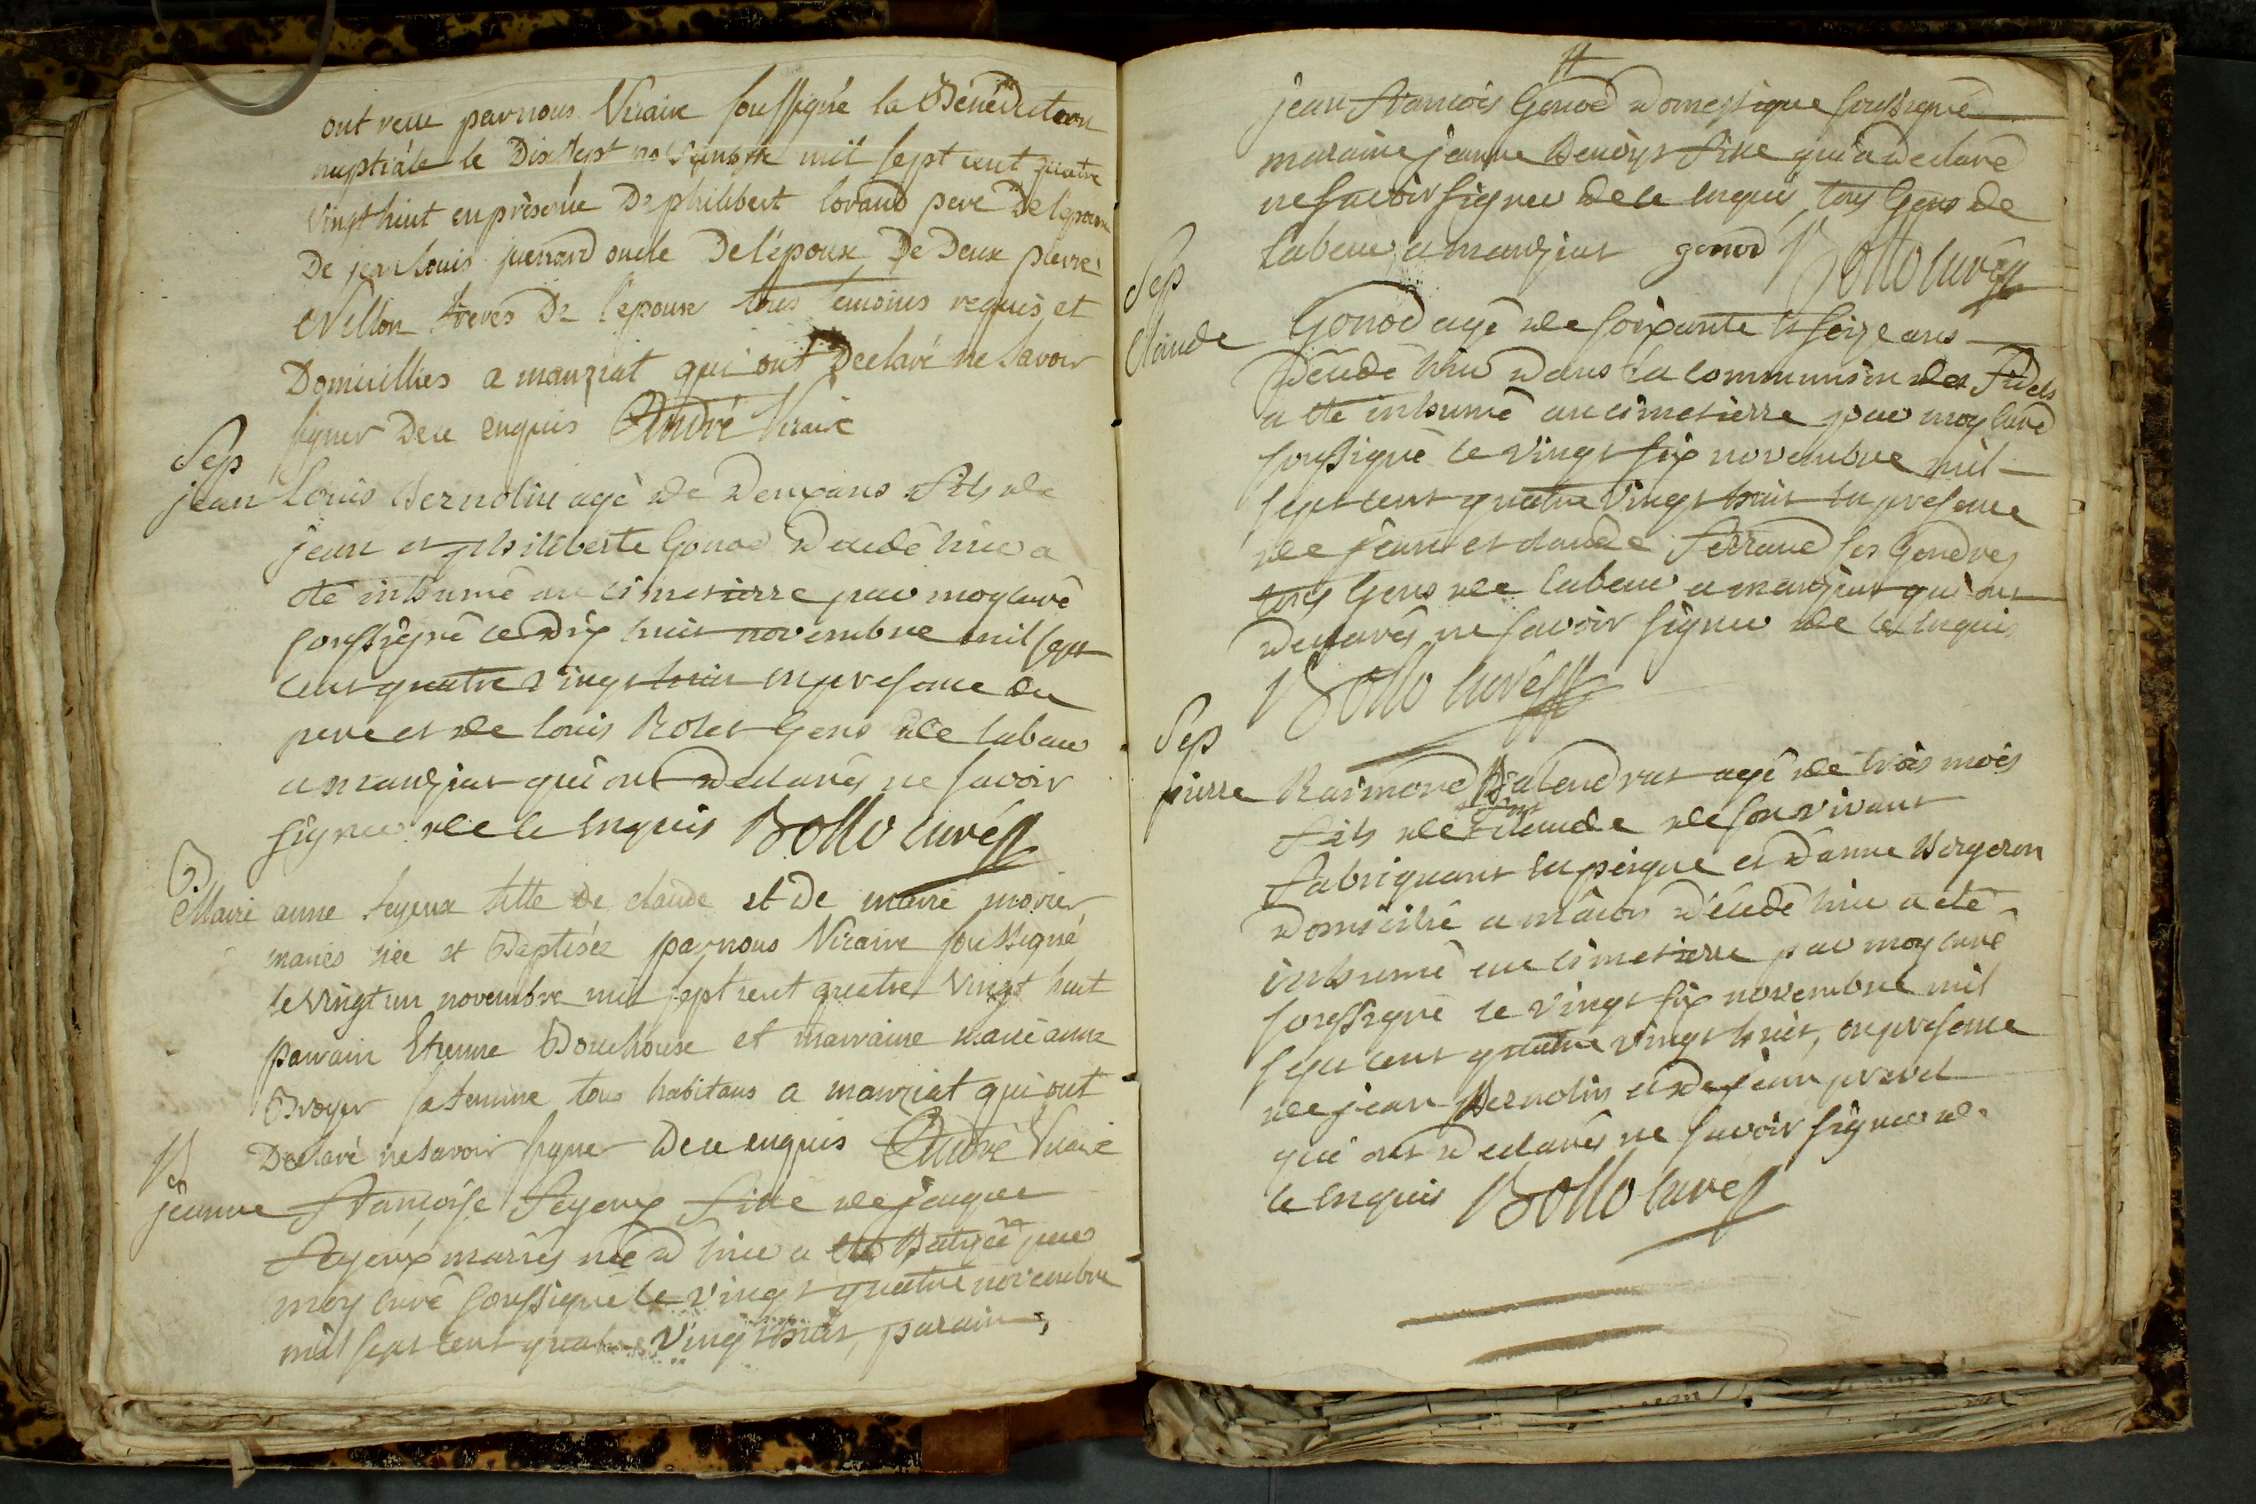 ont recu par nous Vicaire soussigné la Bénédiction
nuptiale le Dix sept novembre mil sept cent quatre
vingt huit en présence De philibert lovand pere De lepoux
De jean louis juenard oncle De l'époux De Deux pierre
Nellon freres De l'epouse tous temoins requis et
Domicillies a manziat qui ont Declaré ne savoir
signer De ce enquis André Vicaire
Sep
jean Louis Bernolin agé de deux ans fils de
jean et philiberte Gonod décédé hier a
été inhumé au cimetierre par moy curé
soussigné le dix huit novembre mil sept
cent quatre vingt huit en presence du
pere et de louis Rolet Gens de labeur
a manziat qui ont declarés ne savoir
signer de ce enquis Bollo curé
B
Marie anne feyeux fille De claude et De marie morier
mariés née et Baptisée par nous Vicaire soussigné
le vingt un novembre mil sept cent quatre vingt huit
parrain Etienne Bouchoux et marraine marie anne
Broyer sa femme tous habitans a manziat qui ont
Declaré ne savoir signer De ce enquis André Vicaire
B
jeanne francoise feyeux fille de jaque
feyeux mariés née d hier a été Batisée par
moy curé soussigné le vingt quatre novembre
mil sept cent quatre vingt huit, parain
jean francois Gonod domestique soussigné
maraine jeanne Benoist fille qui a declaré
ne savoir signer de ce enquis tous Gens de
labeur a manziat gonod Bollo curé
Sep
Claude Gonod agé de soixante et seize ans
décédé hier dans la communion des fidels
a été inhumé au cimetierre par moy curé
soussigné le vingt six novembre mil
sept cent quatre vingt huit en presence
de jean et claude ferrand ses Gendres
tous Gens de labeur a manziat qui ont
declarés ne savoir signer de ce enquis
Bollo curé
Sep
pierre Raimond agé de trois mois
fils de claude de son vivant
fabriquant en peigne et d'anne Bergeron
domicilié a mâcon décédé hier a été
inhumé au cimetierre par moy curé
soussigné le vingt six novembre mil
sept cent quatre vingt huit, en presence
de jean Bernolin et de jean prevel
qui ont declarés ne savoir signer de
ce enquis Bollo curé